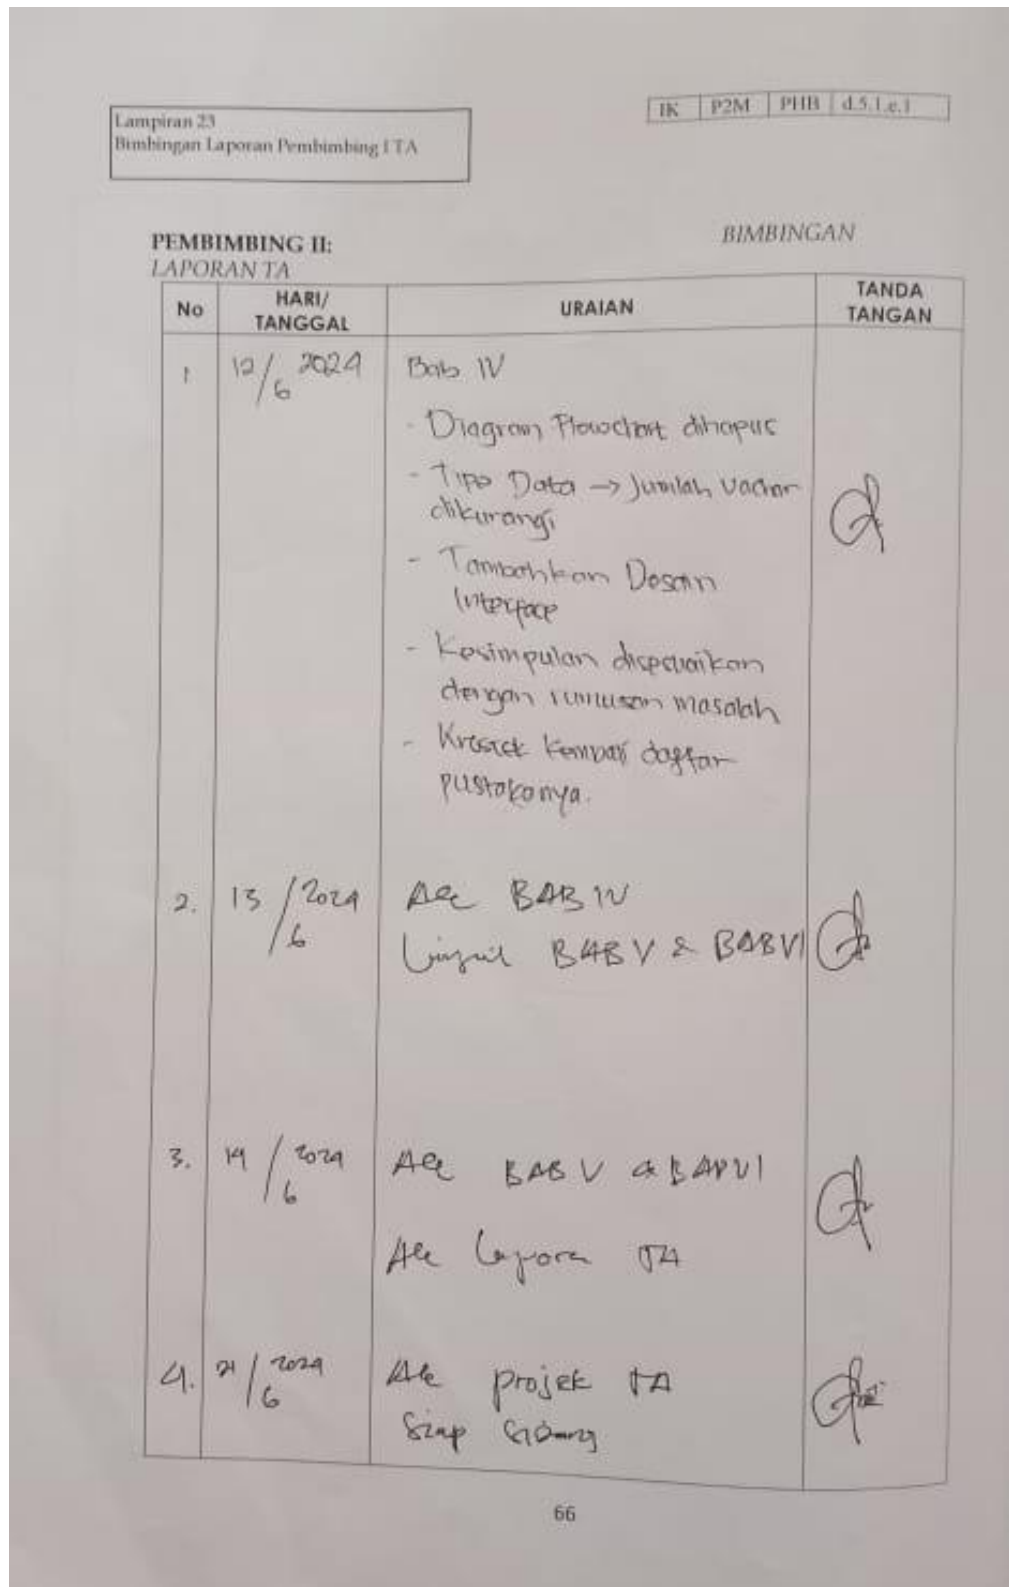 Lampiran 23
Bimbingan Laporan Pembimbing I TA
IK P2M PHB d.5.1.e.1
PEMBIMBING II:
BIMBINGAN
LAPORAN TA
No HARI/ TANGGAL URAIAN TANDA TANGAN
1 12/6 2024 Bab IV
- Diagram Flowchart dihapus
- Tipe Data → Jumlah Vachar
dikurangi
- Tambahkan Desain
Interface
- Kesimpulan disesuaikan
dengan rumusan masalah
- Kroscek kembali daftar
pustakanya.
2. 13/6 2024 Acc BAB IV
Lanjut BAB V & BAB VI
3. 19/6 2024 Acc BAB V & BAB VI
Acc Laporan TA
4. 21/6 2024 Acc projek TA
Siap Sidang
66